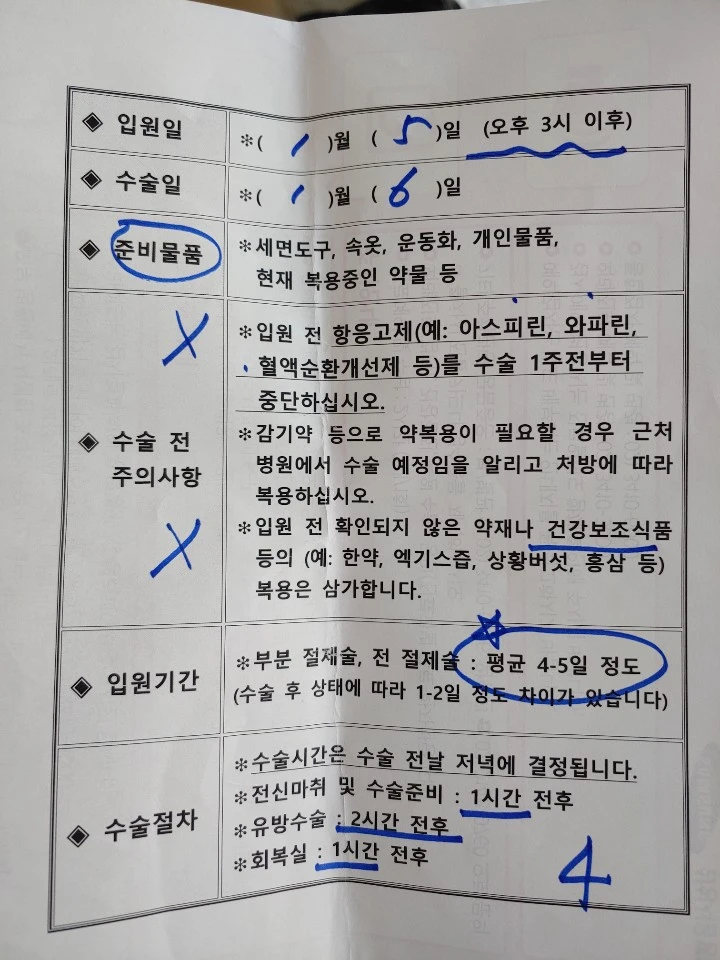 ◈ 입원일
※( 1 )월 ( 5 )일 (오후 3시 이후)
◈ 수술일
※( 1 )월 ( 6 )일
◈ 준비물품
※세면도구, 속옷, 운동화, 개인물품,
현재 복용중인 약물 등
◈ 수술 전
주의사항
X
X
※입원 전 항응고제(예: 아스피린, 와파린,
혈액순환개선제 등)를 수술 1주전부터
중단하십시오.
※감기약 등으로 약복용이 필요할 경우 근처
병원에서 수술 예정임을 알리고 처방에 따라
복용하십시오.
※입원 전 확인되지 않은 약재나 건강보조식품
등의 (예: 한약, 엑기스즙, 상황버섯, 홍삼 등)
복용은 삼가합니다.
◈ 입원기간
※부분 절제술, 전 절제술 : 평균 4-5일 정도
(수술 후 상태에 따라 1-2일 정도 차이가 있습니다)
◈ 수술절차
※수술시간은 수술 전날 저녁에 결정됩니다.
※전신마취 및 수술준비 : 1시간 전후
※유방수술 : 2시간 전후
※회복실 : 1시간 전후
4